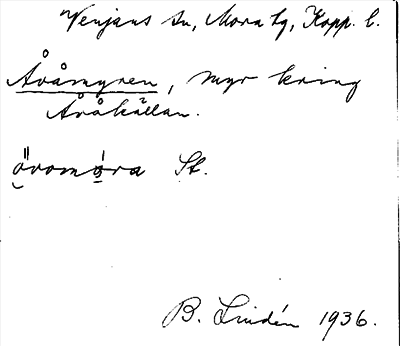 Venjans sn, Mora tg, Kopp. l.
Åvåmyren, myr kring
Åvåkällan.
övomóra St.
B. Lindén 1936.